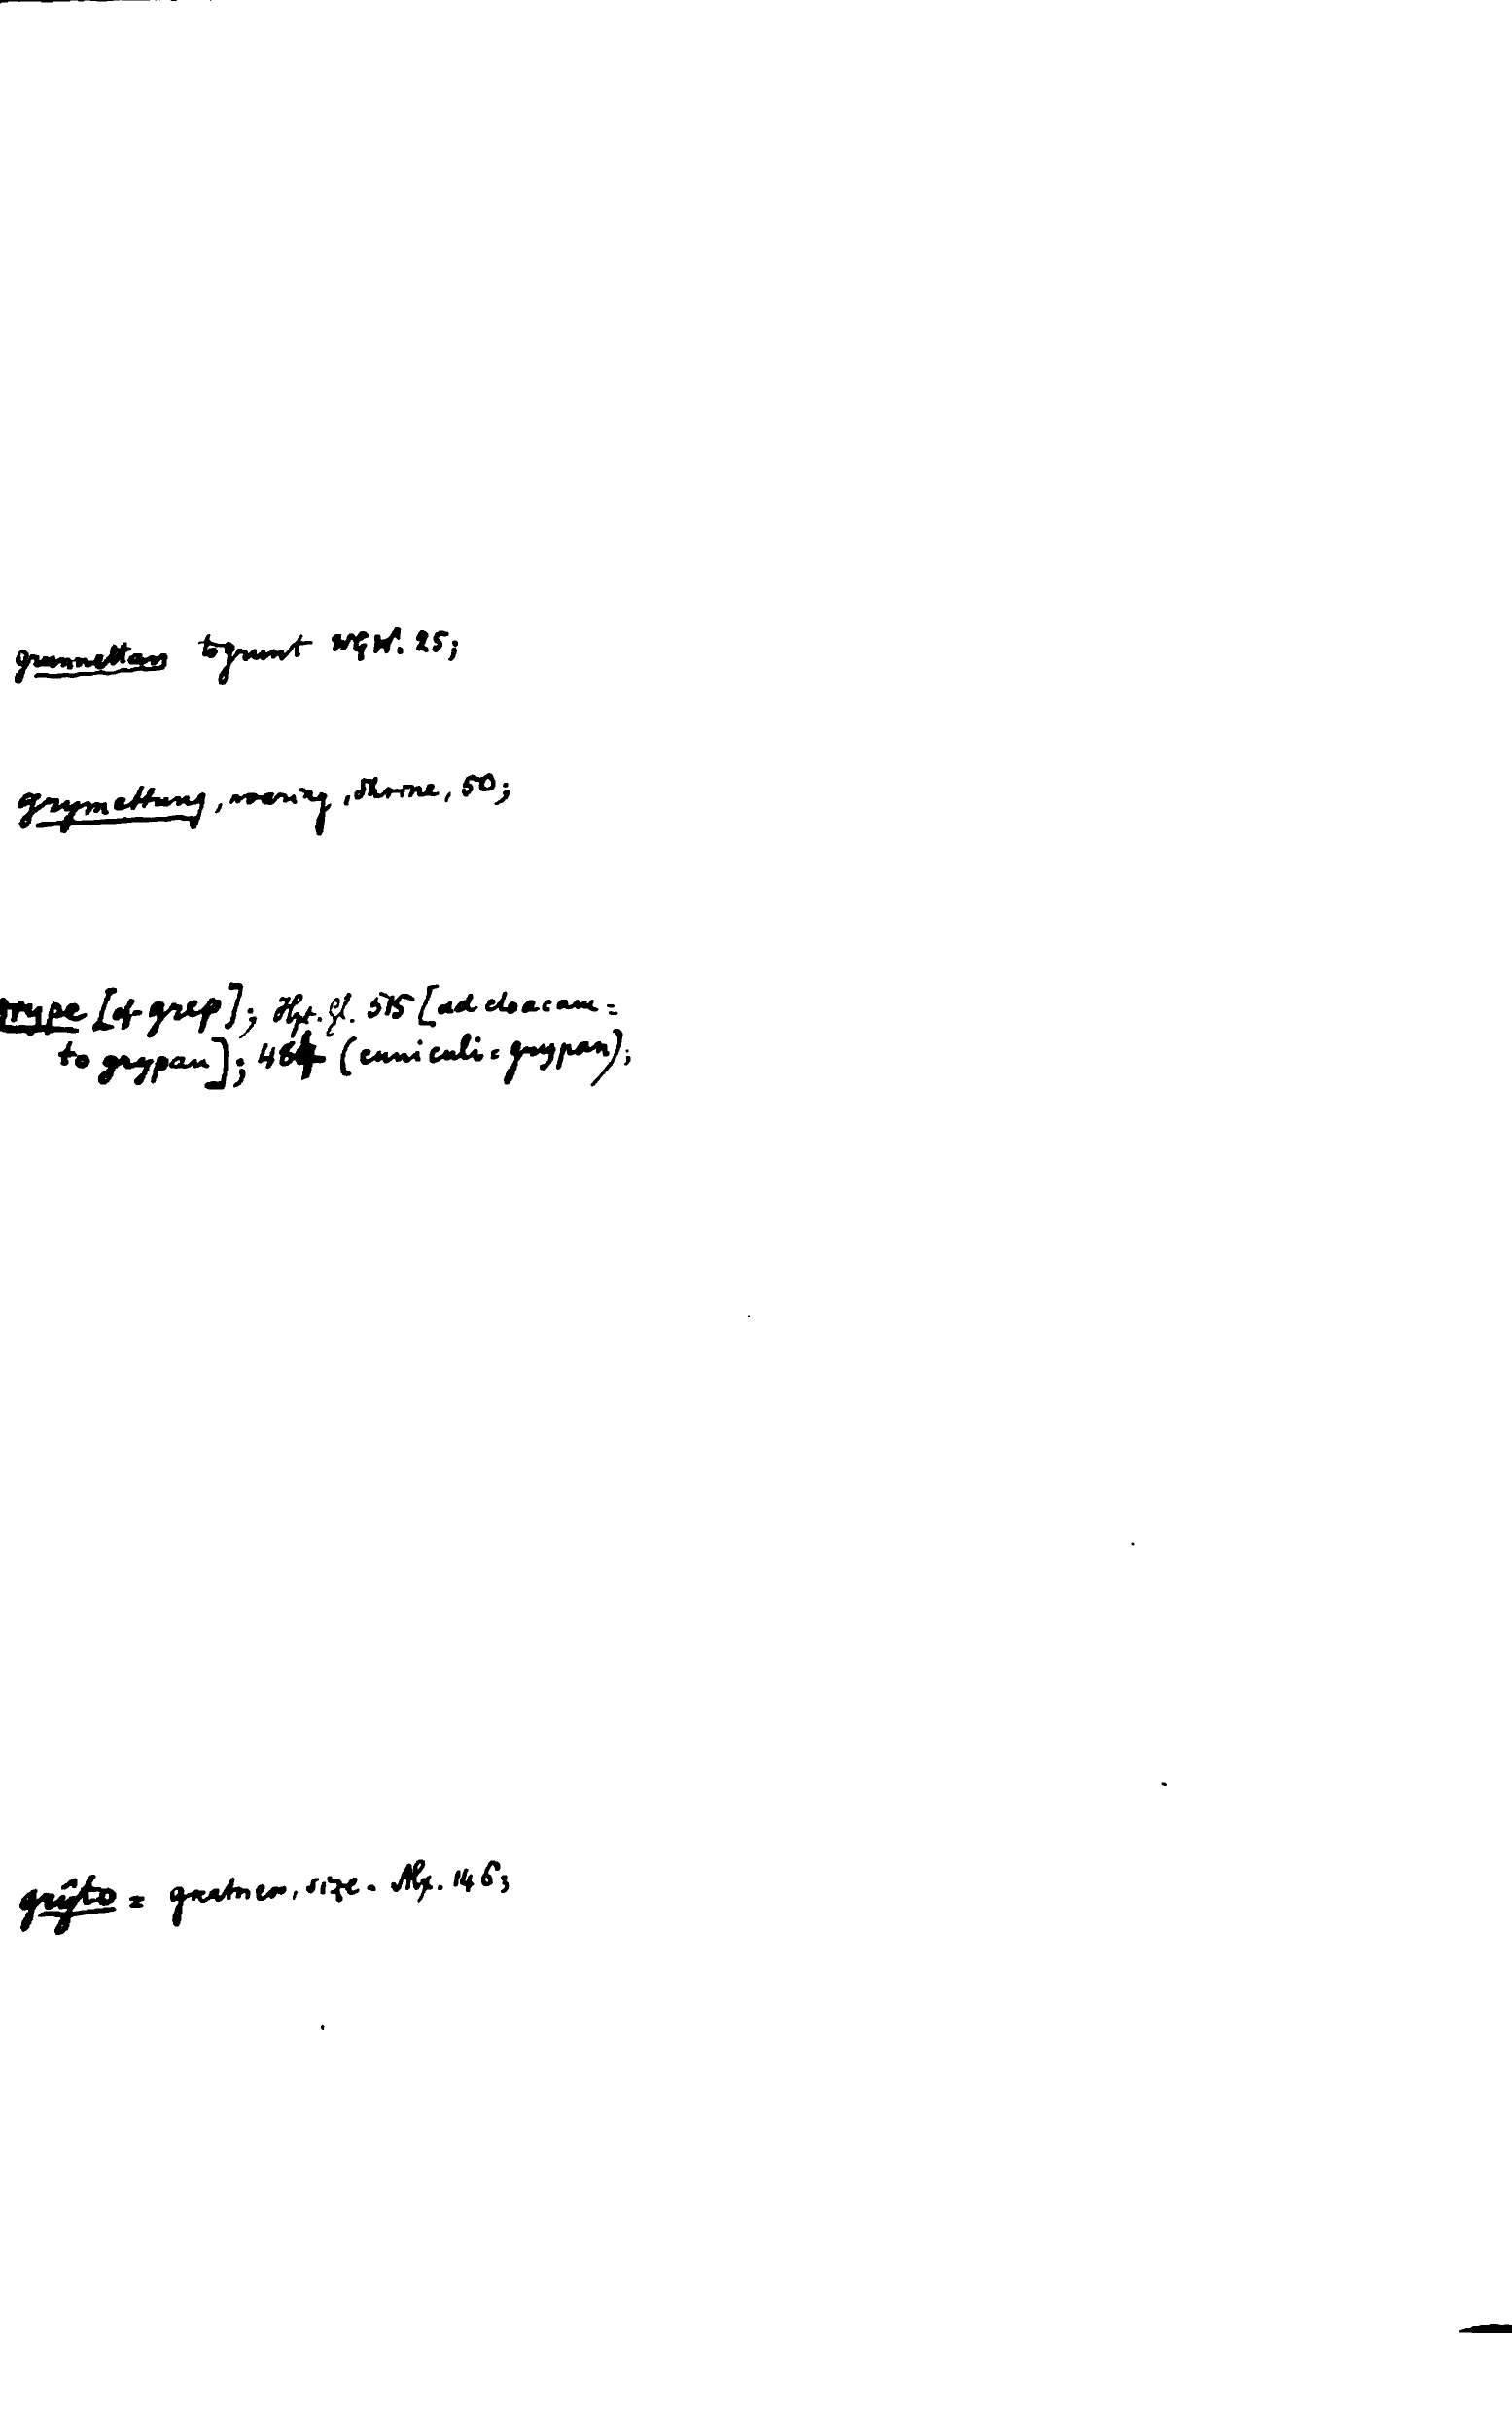 grunnettan to grunt WGW. 25;
grymettung, roaring, Shrine, 50;
grype [cf. grep]; Hpt. Gl. 515 [ad cloacam =
to grypan]; 484 (cuniculi = grypan);
grŷto = greatness, size. Alx. 146;